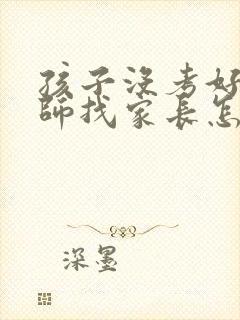 孩子没考好
师找家长怎
深墨